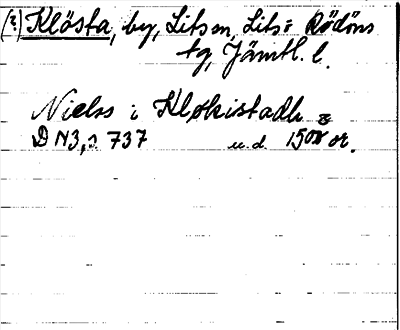 (?) Klösta, by, Lits sn, Lits o Rödöns
tg, Jämtl. l.
Niels i Kløkistadh
DN 3, s. 737 u.d. 1500